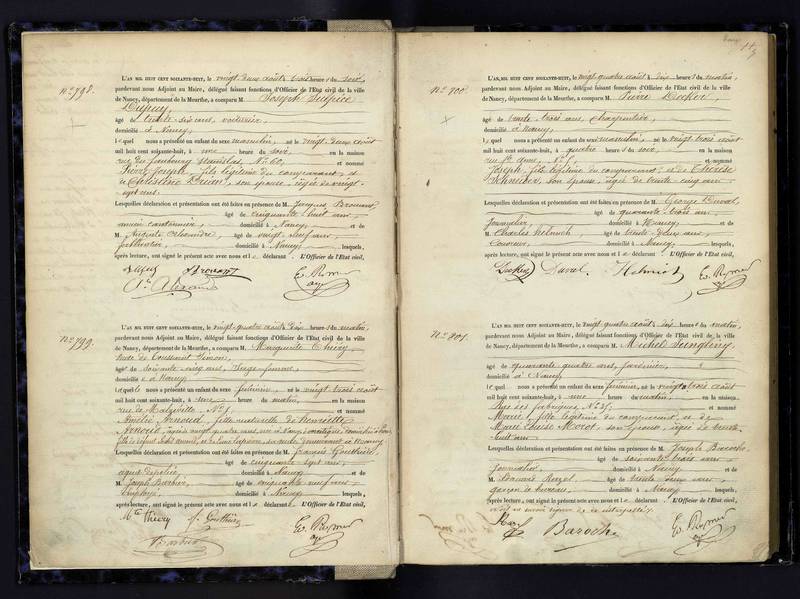 N° 798.
L'AN MIL HUIT CENT SOIXANTE-HUIT, le vingt-deux août trois heures du soir,
pardevant nous Adjoint au Maire, délégué faisant fonctions d'Officier de l'Etat civil de la ville
de Nancy, département de la Meurthe, a comparu M Joseph Sulpice
Dupuy,
âgé de trente-six ans, voiturier,
domicilié à Nancy,
lequel nous a présenté un enfant du sexe masculin, né le vingt-deux août
mil huit cent soixante-huit, à une heure du soir, en la maison
rue du faubourg Stanislas, N° 60, et nommé
Pierre Joseph, fils légitime du comparant et
de Christine, son épouse, âgée de vingt-
sept ans.
Lesquelles déclaration et présentation ont été faites en présence de M. Jacques
âgé de cinquante-huit ans,
ancien cantonnier, domicilié à Nancy, et de
M. Auguste âgé de vingt-neuf ans,
domicilié à Nancy, lesquels,
après lecture, ont signé le présent acte avec nous et le déclarant. L'Officier de l'Etat civil,
N° 799.
L'AN MIL HUIT CENT SOIXANTE-HUIT, le vingt-quatre août dix heures du matin,
pardevant nous Adjoint au Maire, délégué faisant fonctions d'Officier de l'Etat civil de la ville
de Nancy, département de la Meurthe, a comparu M Marguerite Thiéry,
veuve de Toussaint Simon,
âgée de soixante-cinq ans, Sage-femme,
domiciliée à Nancy,
laquelle nous a présenté un enfant du sexe féminin, né le vingt trois août
mil huit cent soixante-huit, à une heure du matin, en la maison
rue de Malzéville, N° 1, et nommé
Amélie Arnould, fille naturelle de Henriette
Arnould, âgée de vingt quatre ans, née à Nancy
Lesquelles déclaration et présentation ont été faites en présence de M. François Gouthière,
âgé de cinquante sept ans,
agent de police, domicilié à Nancy et de
M. Joseph Barbier, âgé de cinquante neuf ans,
employé, domicilié à Nancy, lesquels,
après lecture, ont signé le présent acte avec nous et la déclarante. L'Officier de l'Etat civil,
Mte Thiéry f. Gouthière
Barbier
N° 800.
L'AN MIL HUIT CENT SOIXANTE-HUIT, le vingt-quatre août à dix heures du matin,
pardevant nous Adjoint au Maire, délégué faisant fonctions d'Officier de l'Etat civil de la ville
de Nancy, département de la Meurthe, a comparu M Pierre Decker,
âgé de trente trois ans, charpentier,
domicilié à Nancy,
lequel nous a présenté un enfant du sexe masculin, né le vingt trois août
mil huit cent soixante-huit, à quatre heures du soir, en la maison
rue Ste Anne, N° et nommé
Joseph, fils légitime du comparant, et de Thérèse
Schneider, son épouse, âgée de trente-cinq ans.
Lesquelles déclaration et présentation ont été faites en présence de M. George Duval,
âgé de quarante-trois ans,
journalier, domicilié à Nancy, et de
M. Charles Helmich âgé de trente-deux ans,
couvreur, domicilié à Nancy, lesquels,
après lecture, ont signé le présent acte avec nous et le déclarant. L'Officier de l'Etat civil,
N° 801.
L'AN MIL HUIT CENT SOIXANTE-HUIT, le vingt-quatre août, dix heures du matin,
pardevant nous Adjoint au Maire, délégué faisant fonctions d'Officier de l'Etat civil de la ville
de Nancy, département de la Meurthe, a comparu M. Michel
âgé de quarante-quatre ans, jardinier,
domicilié à Nancy
lequel nous a présenté un enfant du sexe féminin, né le vingt-trois août
mil huit cent soixante-huit, à une heure du matin, en la maison
Rue des fabriques, N° et nommé
Marie, fille légitime du comparant, et de
Marie Louise Morot, son épouse, âgée de trente-
huit ans.
Lesquelles déclaration et présentation ont été faites en présence de M. Joseph Baroche,
âgé de soixante trois ans,
journalier, domicilié à Nancy et de
M. âgé de trente deux ans,
garçon de bureau, domicilié à Nancy, lesquels,
après lecture, ont signé le présent acte avec nous et le déclarant. L'Officier de l'Etat civil,
Baroche